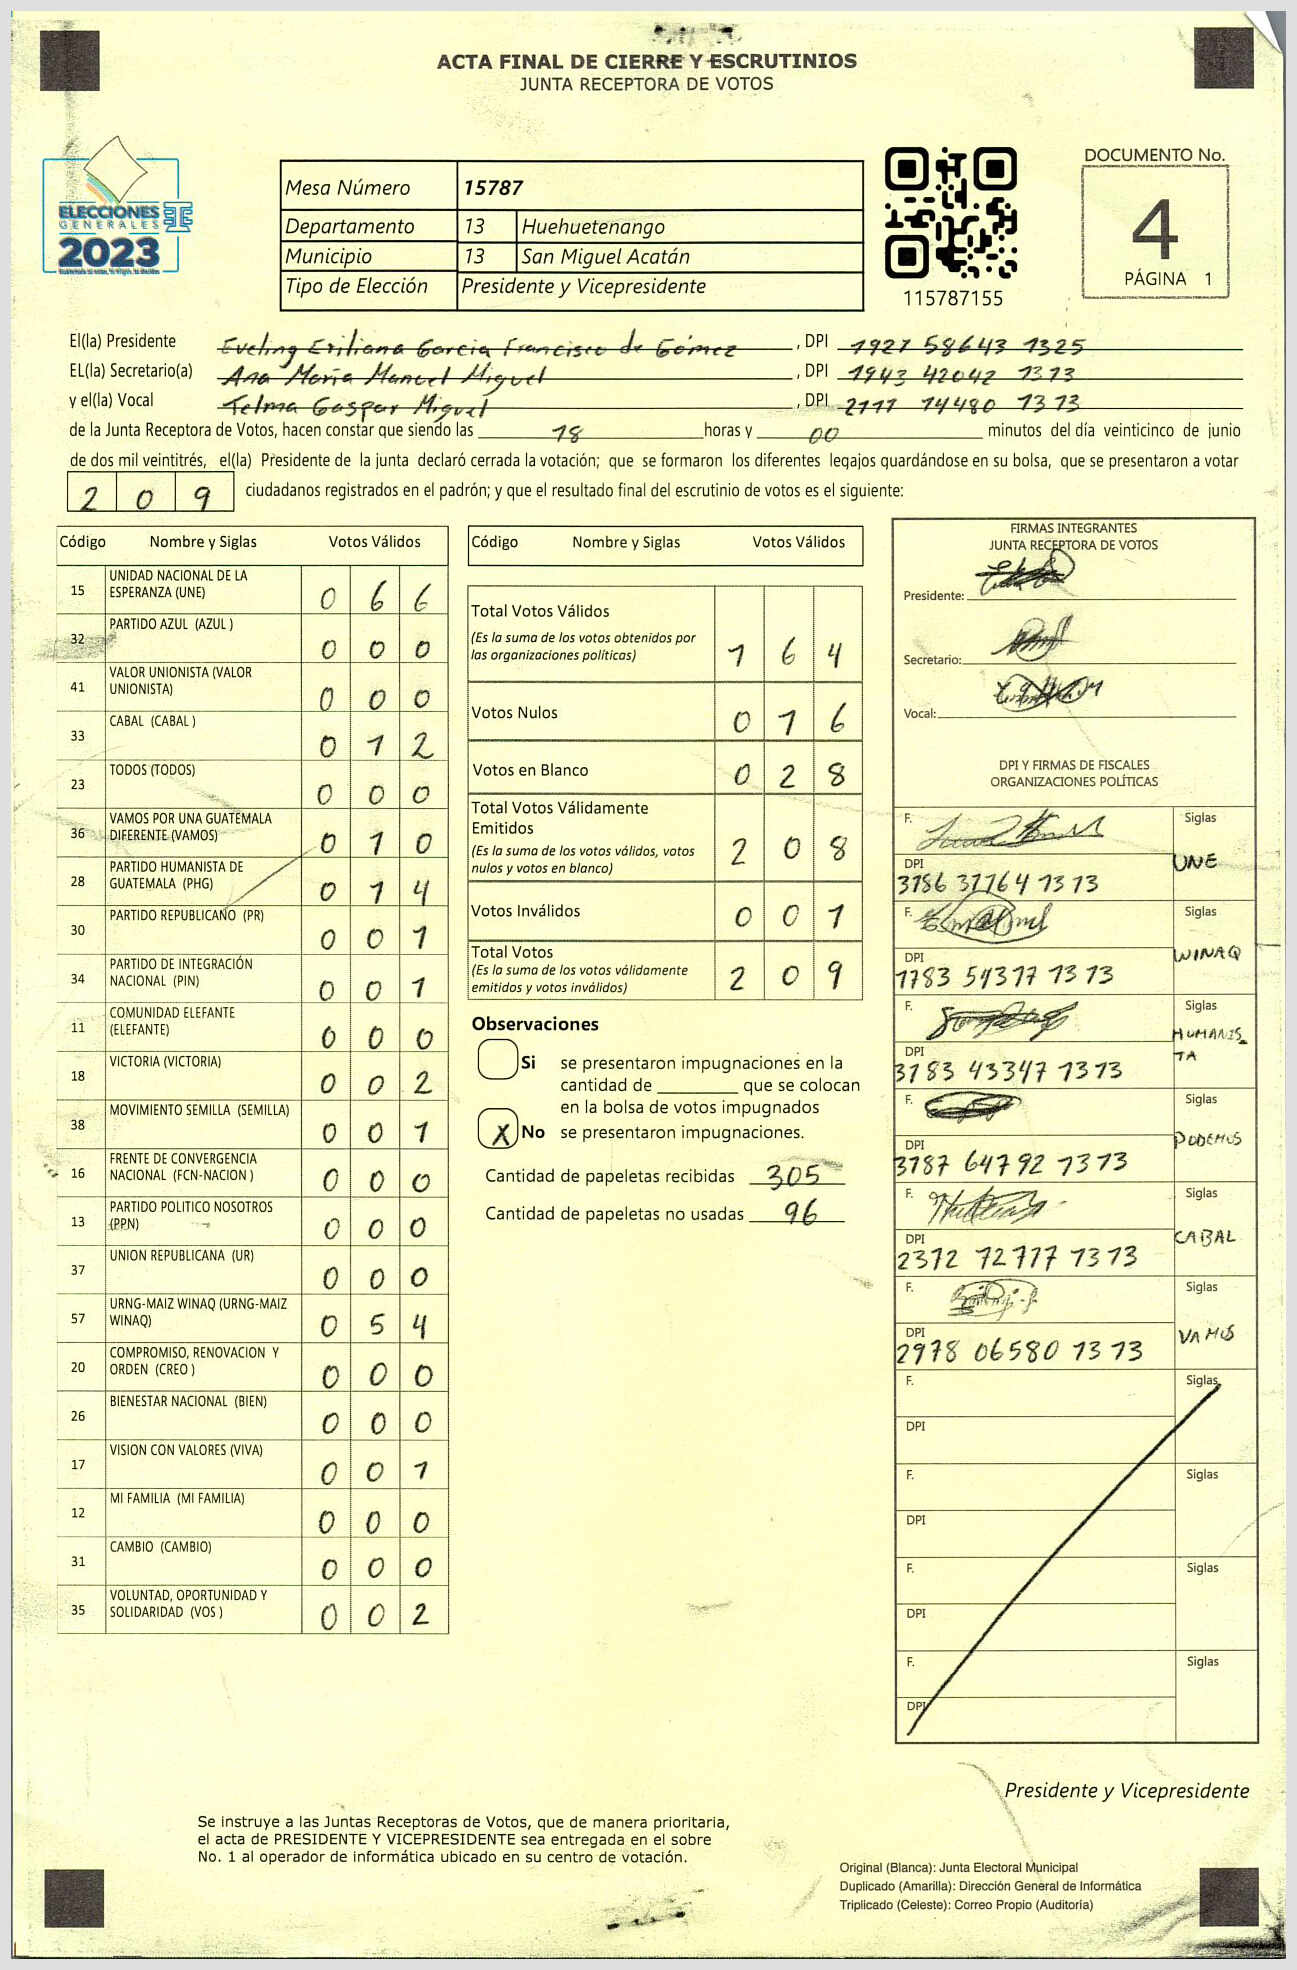 ACTA FINAL DE CIERRE Y ESCRUTINIOS
JUNTA RECEPTORA DE VOTOS
ELECCIONES
GENERALES
2023
Mesa Número 15787
Departamento 13 Huehuetenango
Municipio 13 San Miguel Acatán
Tipo de Elección Presidente y Vicepresidente
115787155
DOCUMENTO No.
4
PÁGINA 1
El(la) Presidente Eveling Eriliana Garcia Francisco de Gómez, DPI 1927 58643 1325
EL(la) Secretario(a) Ana María Manuel Miguel, DPI 1943 42042 1313
y el(la) Vocal Telma Gaspar Miguel, DPI 2111 14480 1313
de la Junta Receptora de Votos, hacen constar que siendo las 18 horas y 00 minutos del día veinticinco de junio
de dos mil veintitrés, el(la) Presidente de la junta declaró cerrada la votación; que se formaron los diferentes legajos guardándose en su bolsa, que se presentaron a votar
2 0 9 ciudadanos registrados en el padrón; y que el resultado final del escrutinio de votos es el siguiente:
Código Nombre y Siglas Votos Válidos
15 UNIDAD NACIONAL DE LA ESPERANZA (UNE) 0 6 6
32 PARTIDO AZUL (AZUL ) 0 0 0
41 VALOR UNIONISTA (VALOR UNIONISTA) 0 0 0
33 CABAL (CABAL ) 0 1 2
23 TODOS (TODOS) 0 0 0
36 VAMOS POR UNA GUATEMALA DIFERENTE (VAMOS) 0 1 0
28 PARTIDO HUMANISTA DE GUATEMALA (PHG) 0 1 4
30 PARTIDO REPUBLICANO (PR) 0 0 1
34 PARTIDO DE INTEGRACIÓN NACIONAL (PIN) 0 0 1
11 COMUNIDAD ELEFANTE (ELEFANTE) 0 0 0
18 VICTORIA (VICTORIA) 0 0 2
38 MOVIMIENTO SEMILLA (SEMILLA) 0 0 1
16 FRENTE DE CONVERGENCIA NACIONAL (FCN-NACION ) 0 0 0
13 PARTIDO POLITICO NOSOTROS (PPN) 0 0 0
37 UNION REPUBLICANA (UR) 0 0 0
57 URNG-MAIZ WINAQ (URNG-MAIZ WINAQ) 0 5 4
20 COMPROMISO, RENOVACION Y ORDEN (CREO ) 0 0 0
26 BIENESTAR NACIONAL (BIEN) 0 0 0
17 VISION CON VALORES (VIVA) 0 0 1
12 MI FAMILIA (MI FAMILIA) 0 0 0
31 CAMBIO (CAMBIO) 0 0 0
35 VOLUNTAD, OPORTUNIDAD Y SOLIDARIDAD (VOS ) 0 0 2
Código Nombre y Siglas Votos Válidos
Total Votos Válidos
(Es la suma de los votos obtenidos por
las organizaciones políticas) 1 6 4
Votos Nulos 0 1 6
Votos en Blanco 0 2 8
Total Votos Válidamente
Emitidos
(Es la suma de los votos válidos, votos
nulos y votos en blanco) 2 0 8
Votos Inválidos 0 0 1
Total Votos
(Es la suma de los votos válidamente
emitidos y votos inválidos) 2 0 9
Observaciones
Si se presentaron impugnaciones en la
cantidad de ________ que se colocan
en la bolsa de votos impugnados
X No se presentaron impugnaciones.
Cantidad de papeletas recibidas 305
Cantidad de papeletas no usadas 96
FIRMAS INTEGRANTES
JUNTA RECEPTORA DE VOTOS
Presidente:
Secretario:
Vocal:
DPI Y FIRMAS DE FISCALES
ORGANIZACIONES POLÍTICAS
F. Siglas
UNE
DPI
3186 31164 1313
F. Siglas
WINAQ
DPI
1783 54377 1313
F. Siglas
HUMANIS_
TA
DPI
3183 43347 1313
F. Siglas
PODEMOS
DPI
3187 64792 1313
F. Siglas
CABAL
DPI
2372 72717 1313
F. Siglas
VAMOS
DPI
2978 06580 1313
F. Siglas
DPI
F. Siglas
DPI
F. Siglas
DPI
F. Siglas
DPI
Presidente y Vicepresidente
Se instruye a las Juntas Receptoras de Votos, que de manera prioritaria,
el acta de PRESIDENTE Y VICEPRESIDENTE sea entregada en el sobre
No. 1 al operador de informática ubicado en su centro de votación.
Original (Blanca): Junta Electoral Municipal
Duplicado (Amarilla): Dirección General de Informática
Triplicado (Celeste): Correo Propio (Auditoría)